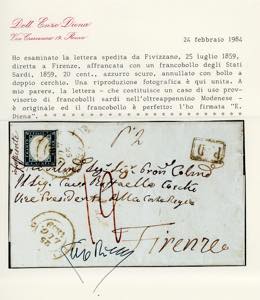 Dott. Enzo Diena
Via Crescenzio 19, Roma
24 febbraio 1984
Ho esaminato la lettera spedita da Fivizzano, 25 luglio 1859,
diretta a Firenze, affrancata con un francobollo degli Stati
Sardi, 1859, 20 cent., azzurro scuro, annullato con bollo a
doppio cerchio. Una riproduzione fotografica è qui unita. A
mio parere, la lettera - che costituisce un caso di uso prov-
visorio di francobolli sardi nell'oltreappennino Modenese -
è originale ed il francobollo è perfetto: l'ho firmata "E.
Diena".
P.D
Vice Presidente alla Corte Regia
Firenze